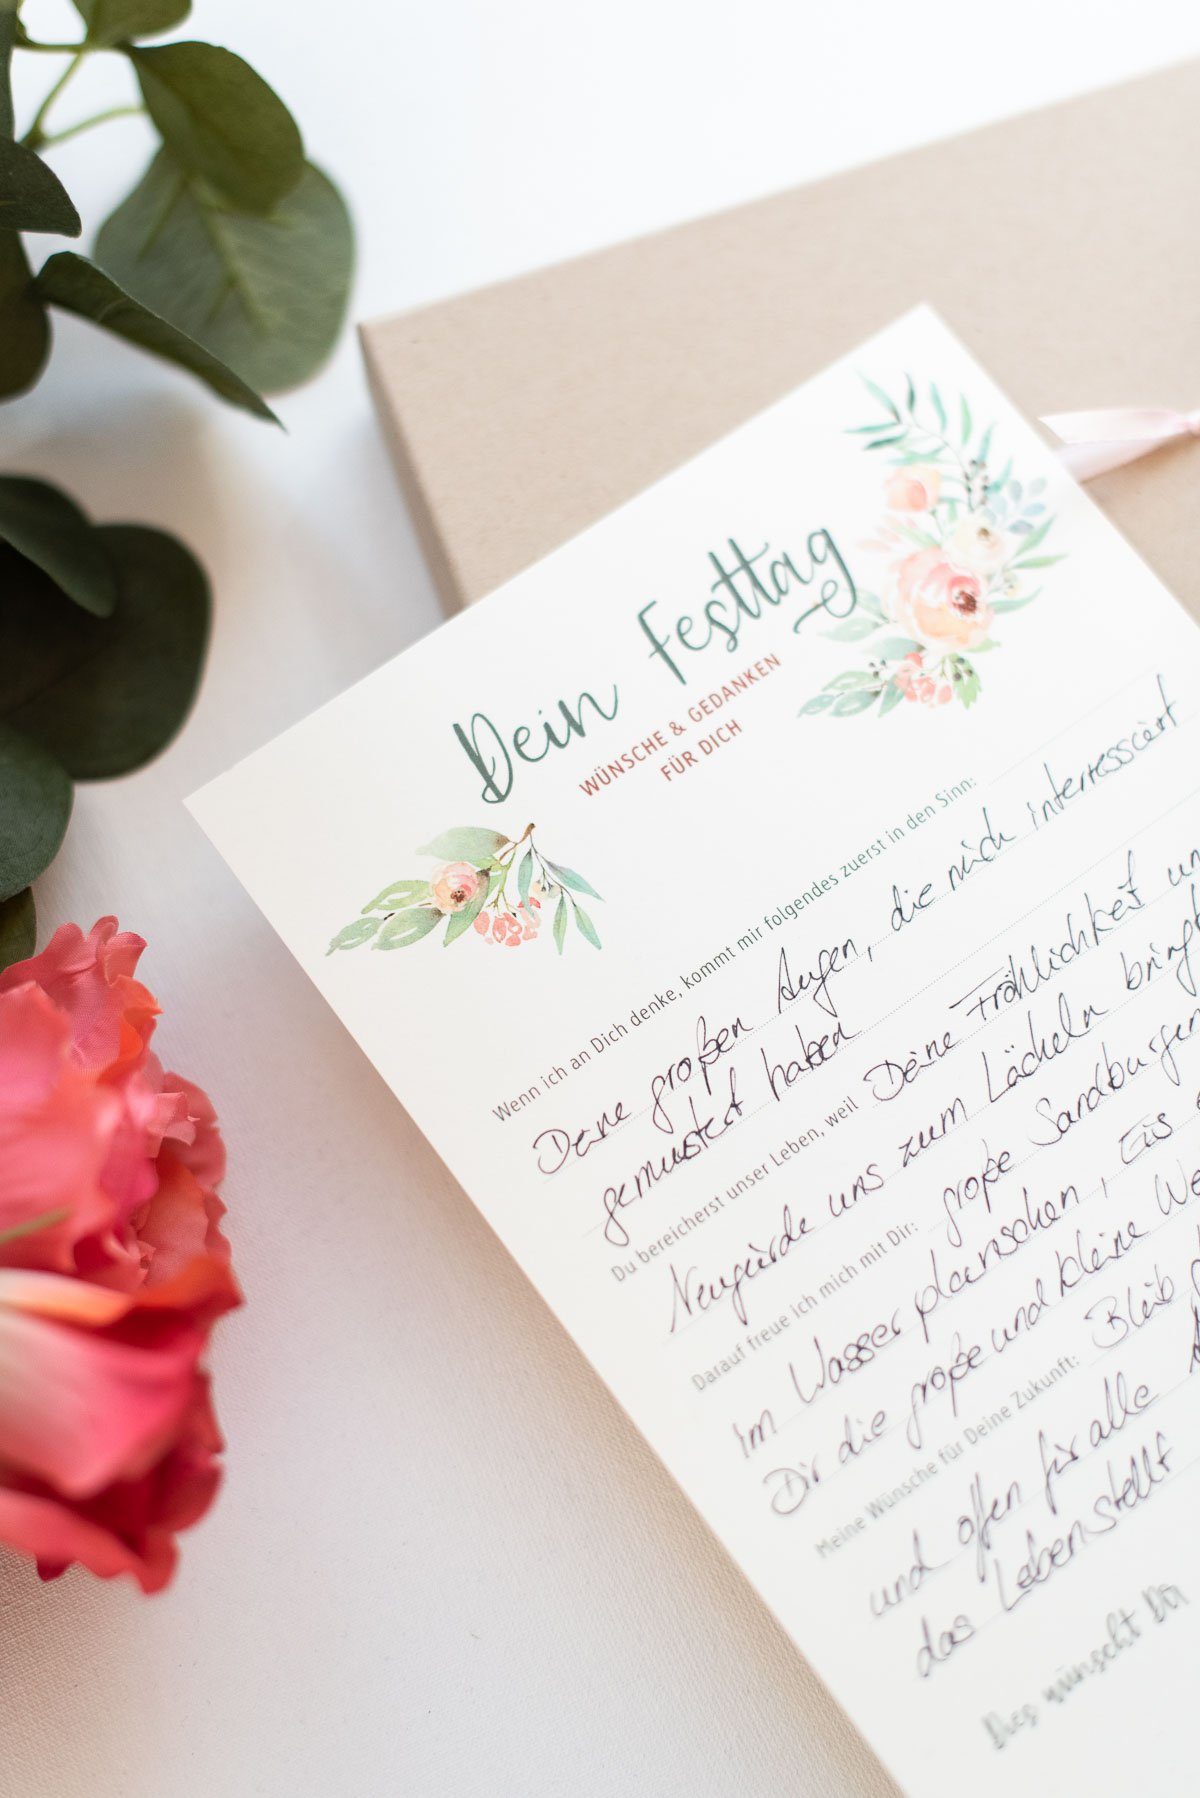 Dein Festtag
WÜNSCHE & GEDANKEN
FÜR DICH
Wenn ich an Dich denke, kommt mir folgendes zuerst in den Sinn:
Deine großen Augen, die mich interressiert
gemustert haben
Du bereicherst unser Leben, weil Deine Fröhlichkeit
Neugirde uns zum Lächeln bringt
Darauf freue ich mich mit Dir: große Sandburgen
im Wasser planschen, Eis
Dir die große und kleine
Meine Wünsche für Deine Zukunft: Bleib
und offen für alle
das Leben stellt
Dies wünscht Dir